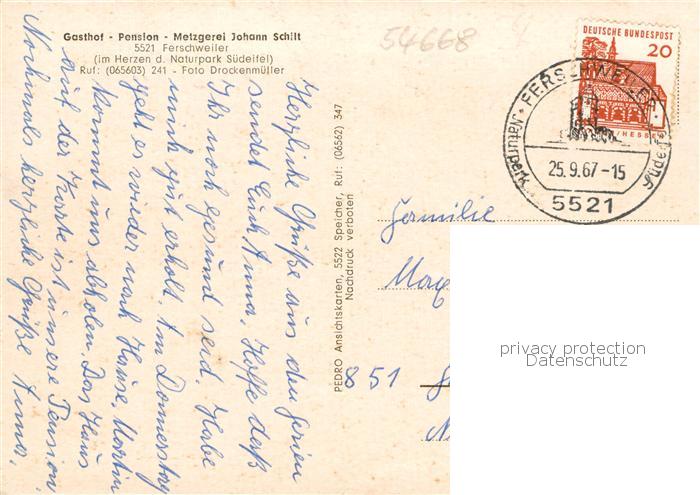 Gasthof - Pension - Metzgerei Johann Schilt
5521 Ferschweiler
(im Herzen d. Naturpark Südeifel)
Ruf: (065603) 241 - Foto Drockenmüller
54668
DEUTSCHE BUNDESPOST
20
/HESSE
FERSCHWEILER
Naturpark
Südei
25.9.67-15
5521
Herzliche Grüße aus den Ferien
sendet Euch Anna. Hoffe daß
Ihr noch gesund seid. Habe
mich gut erholt. Am Donnerstag
geht es wieder nach Hause. Martin
kommt uns abholen. Das Haus
auf der Karte ist unsere Pension
Nochmals herzliche Grüße Anna.
PEDRO Ansichtskarten, 5522 Speicher, Ruf: (06562) 347
Nachdruck verboten
Familie
May
851
privacy protection
Datenschutz